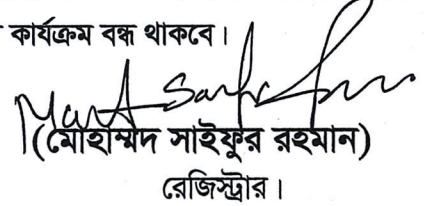 কার্যক্রম বন্ধ থাকবে।
(মোহাম্মদ সাইফুর রহমান)
রেজিস্ট্রার।